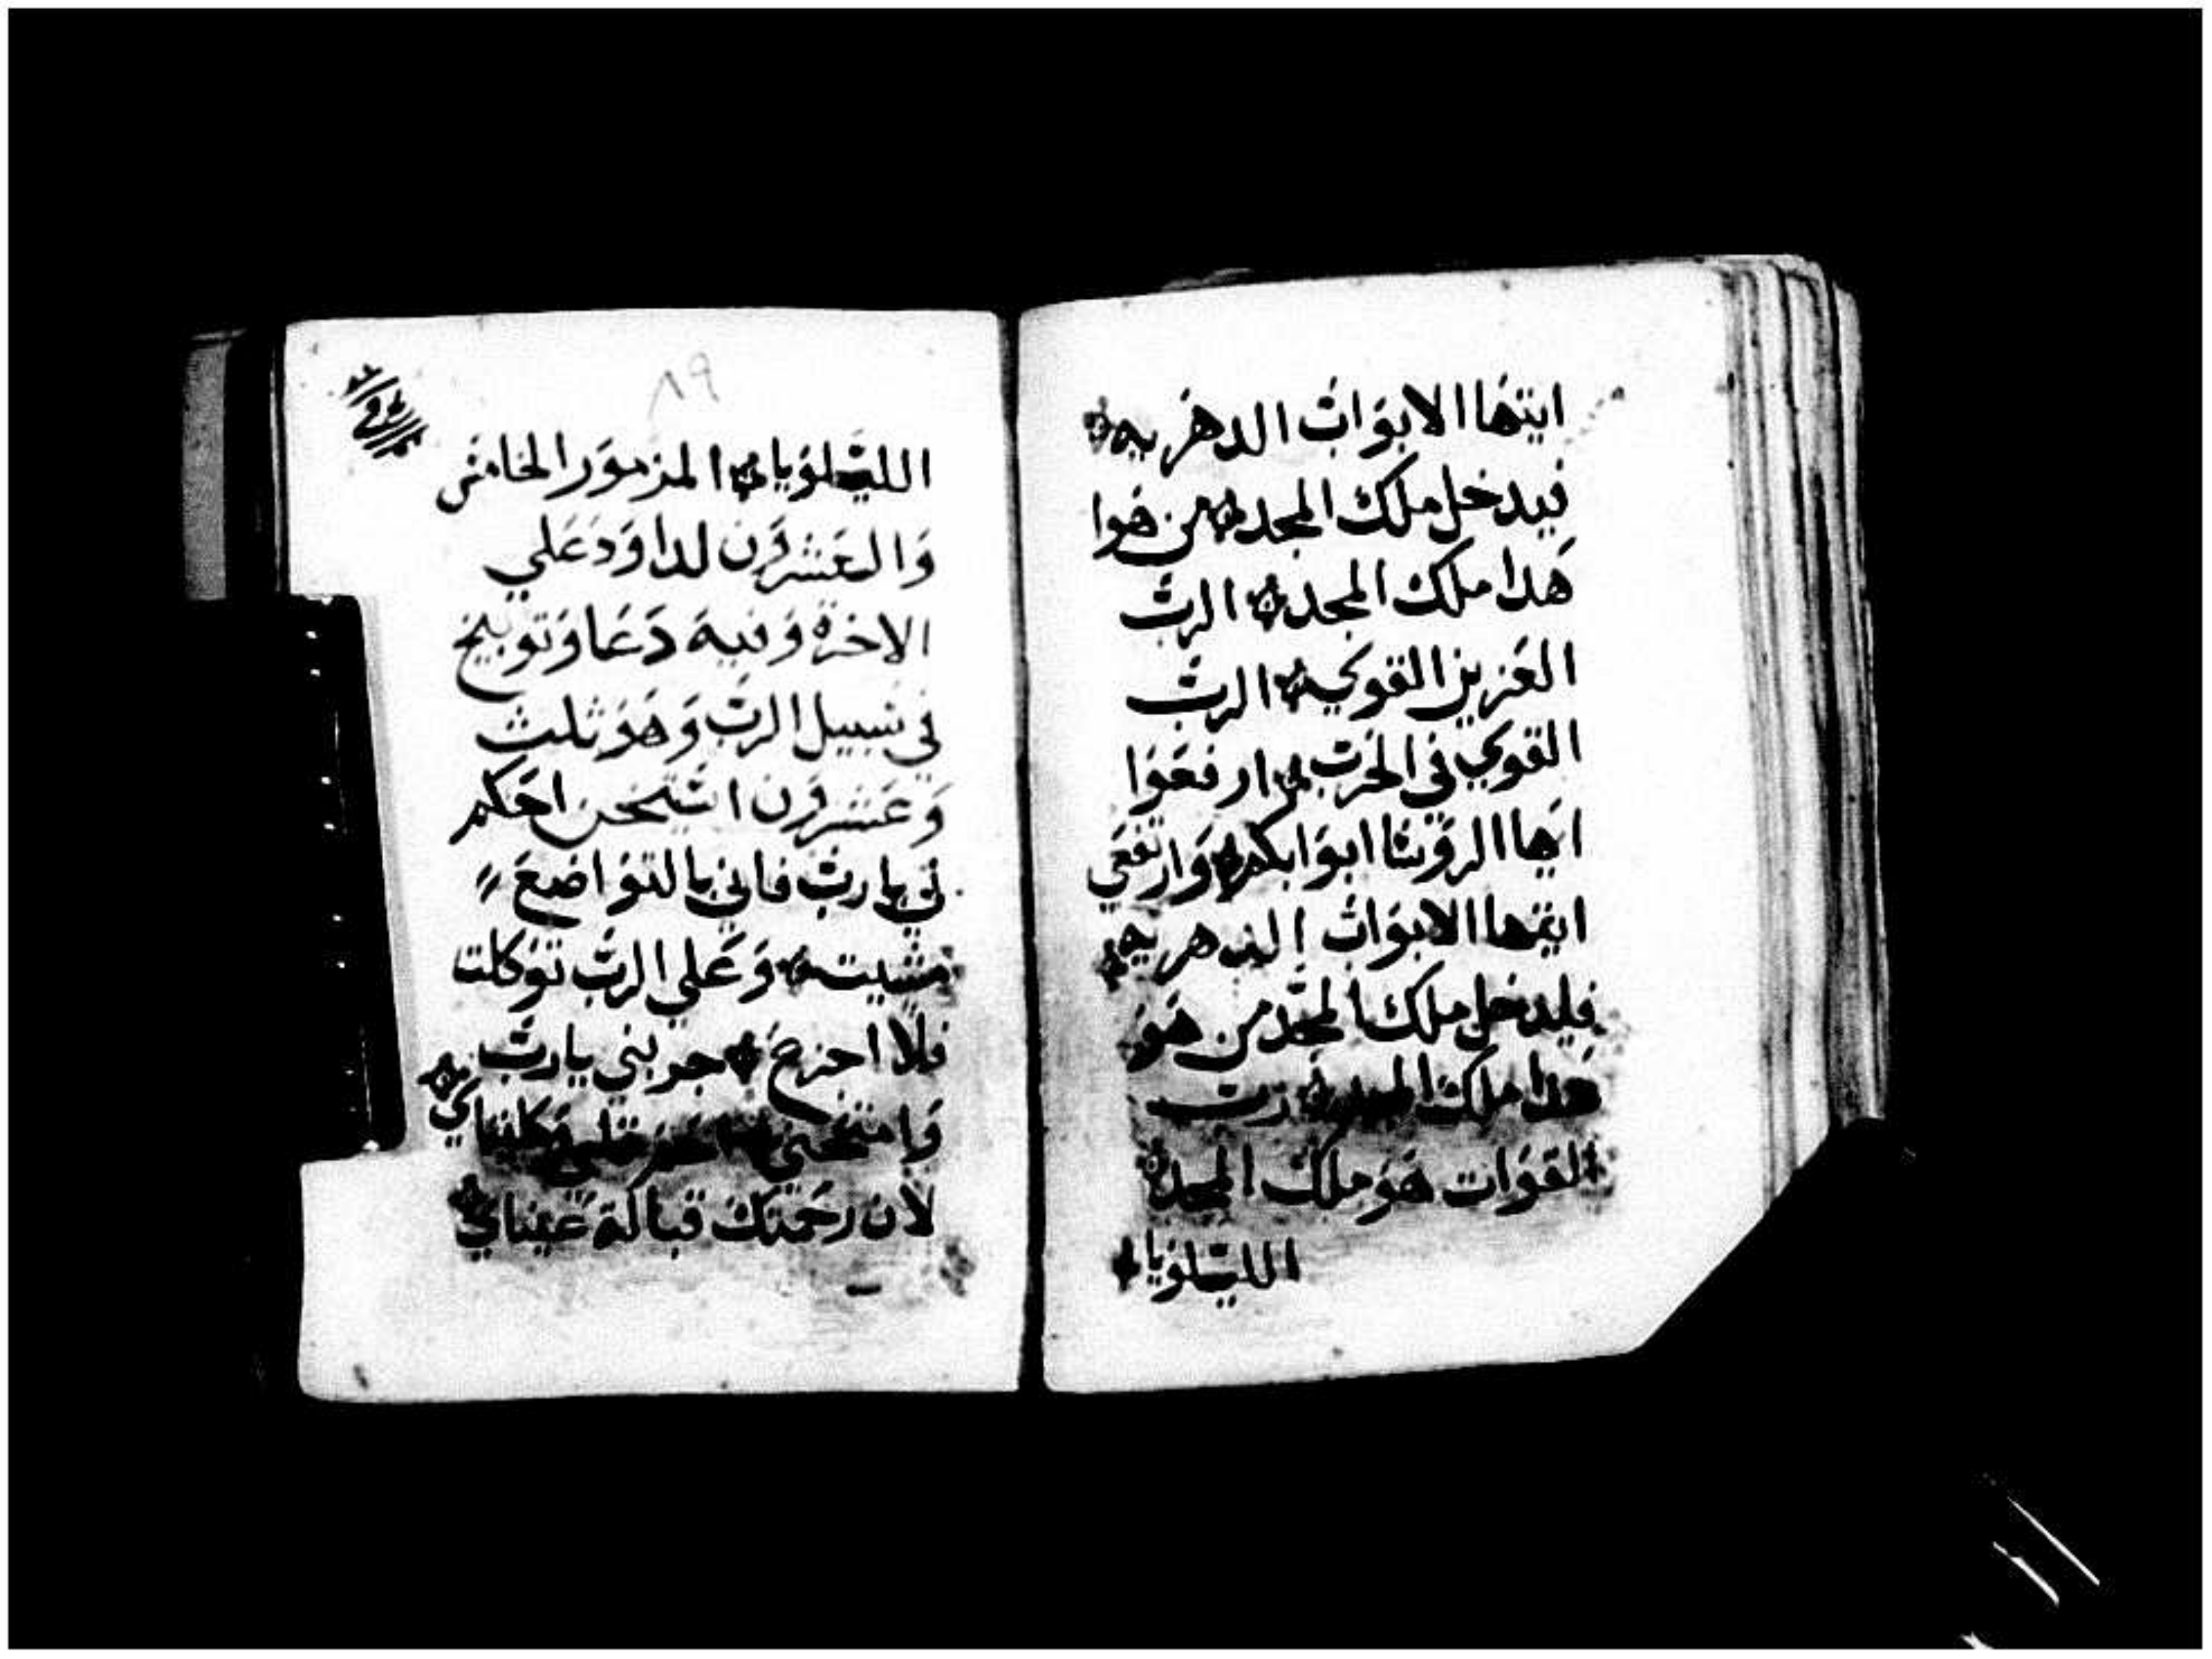 ايتها الابواب الدهريه
فيدخل ملك المجد من هوا
هدا ملك المجد الرب
العزيز القوي الرب
القوي في الحرب ارفعوا
ايها الروسا ابوابكم وارتفعي
ايتها الابواب الدهريه
فليدخل ملك المجد من هو
هدا ملك المجد رب
القوات هو ملك المجد
الليلويا
٨٩
الليلويا المزمور الخامس
والعشرون لداود علي
الاخرة وفيه دعا وتوبيخ
في سبيل الرب وهو ثلث
وعشرون استيخن احكم
لي يارب فاني بالتواضع
مشيت وعلي الرب توكلت
فلا احزع جربني يارب
وامتحني قلبي وكليتاي
لان رحمتك قبالة عيناي